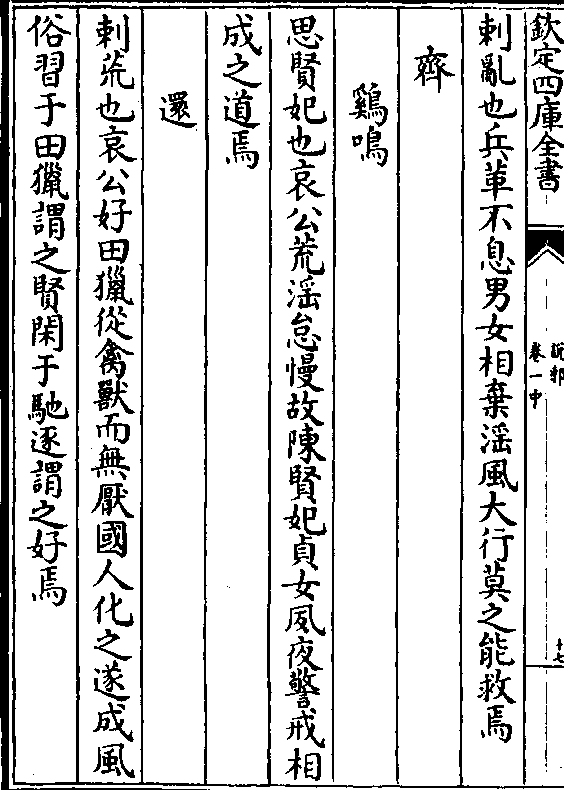 欽定四庫全書
說郛
卷一中
十七
刺亂也兵革不息男女相棄淫風大行莫之能救焉
齊
鷄鳴
思賢妃也哀公荒淫怠慢故陳賢妃貞女夙夜警戒相
成之道焉
還
刺荒也哀公好田獵從禽獸而無厭國人化之遂成風
俗習于田獵謂之賢閑于馳逐謂之好焉